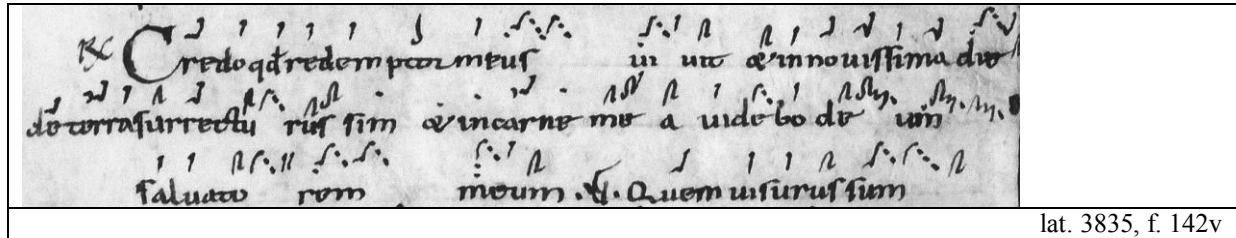 R C Credo qđ redemptor meus in uit &in nouissima die
de terra surrectu rus sim &in carne me a uidebo de um
saluato rem meum . V. Quem uisurus sum
lat. 3835, f. 142v